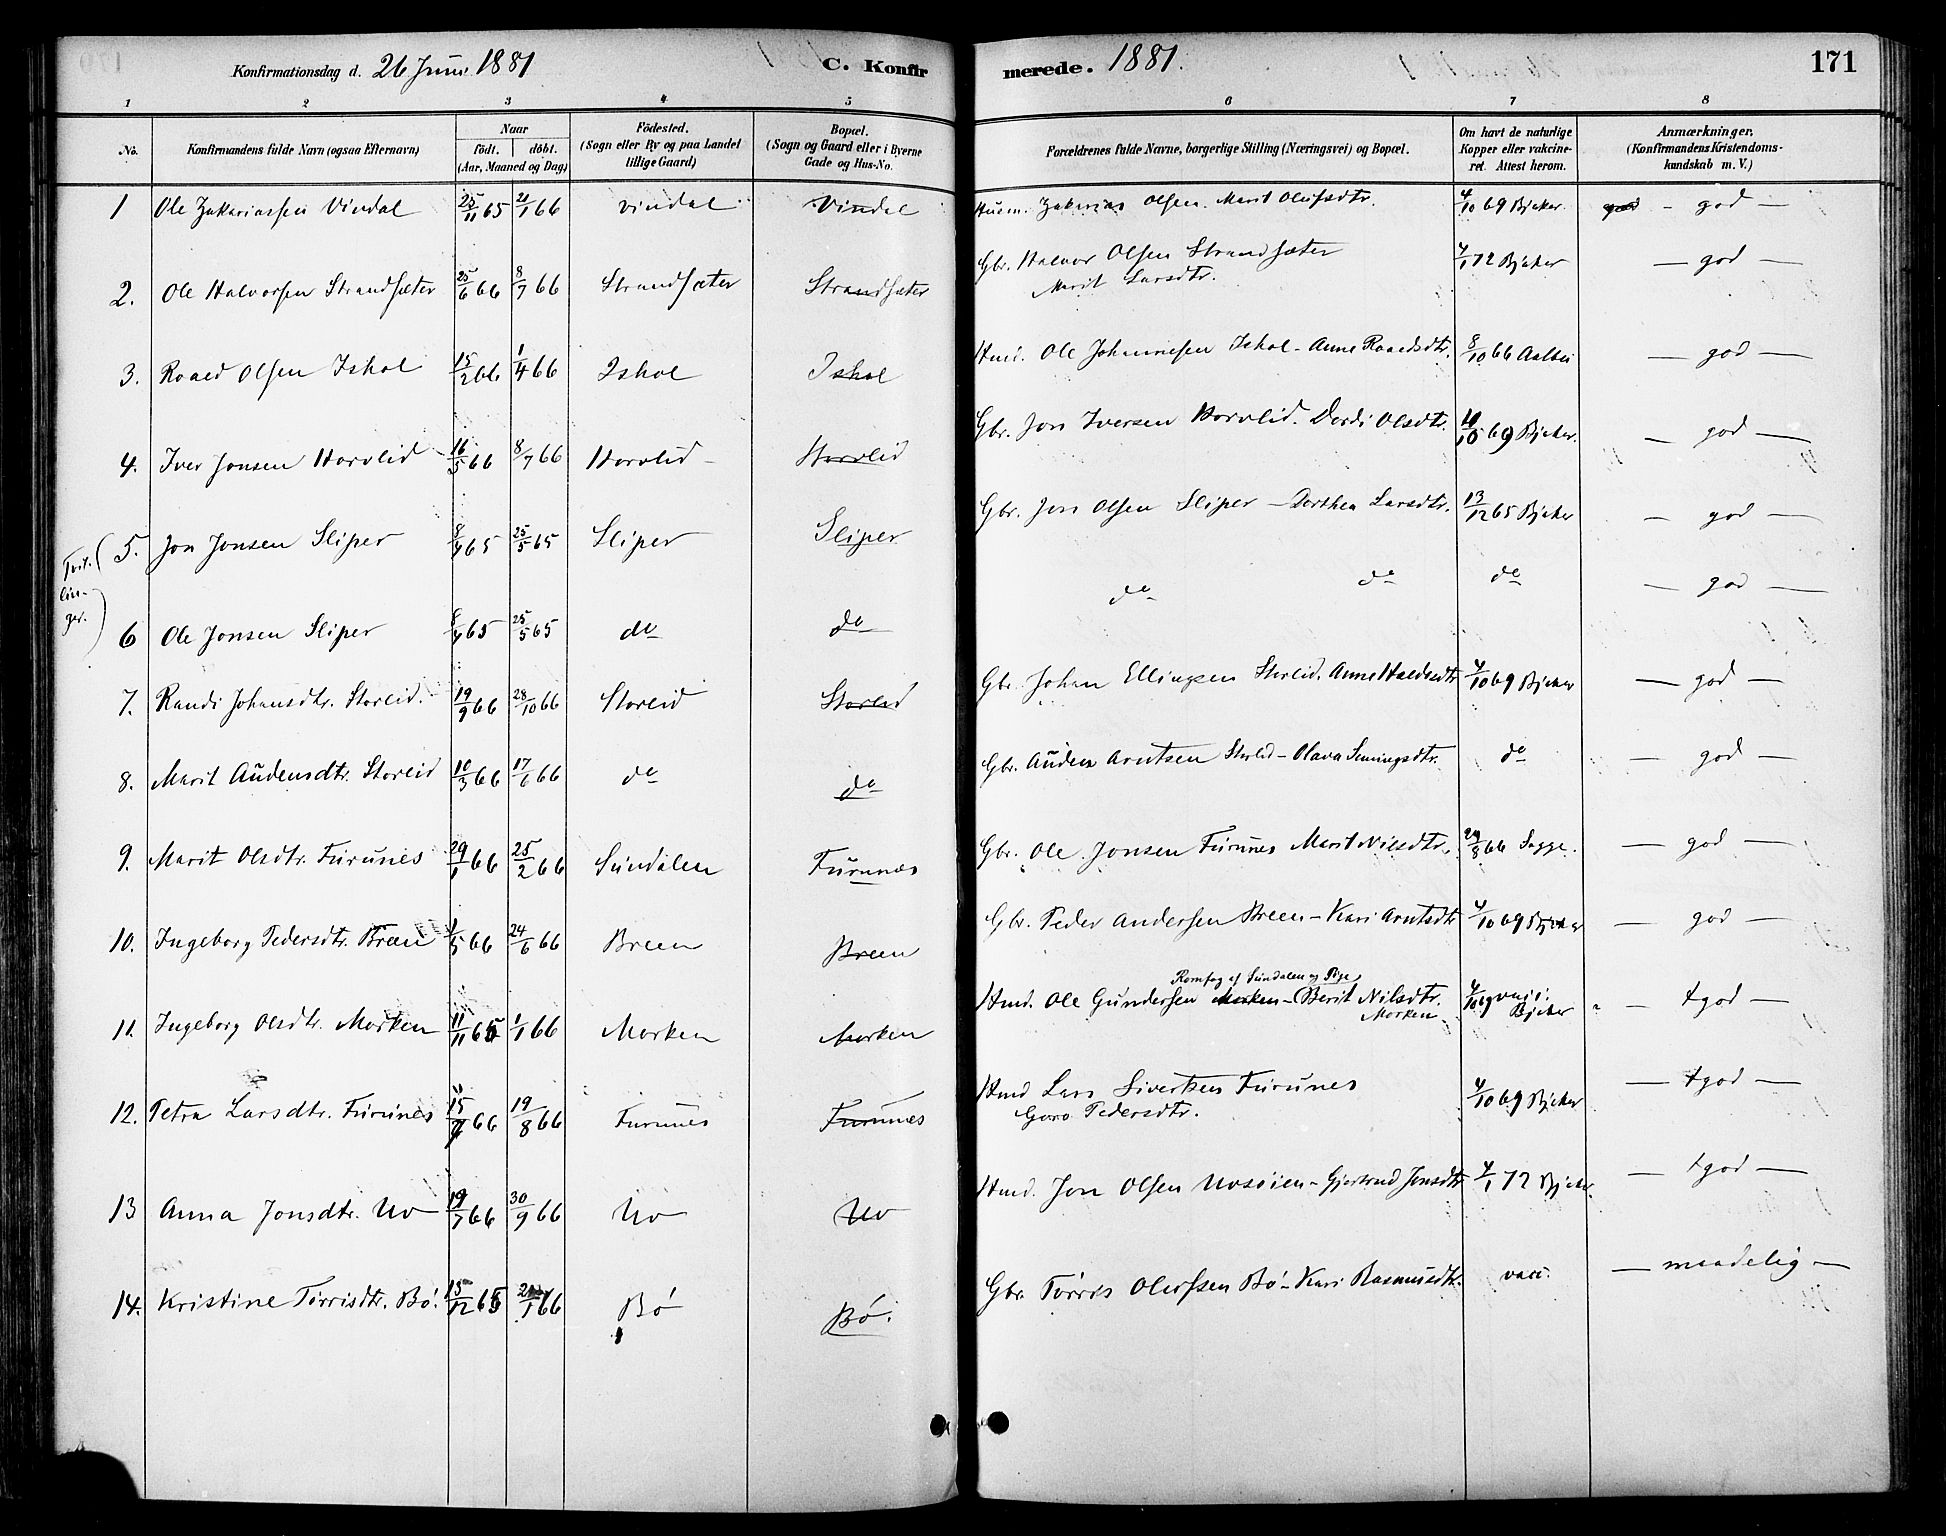 Konfirmationsdag d. 26 Juni 1881
C. Konfirmerede. 1881.
171
1 2 3 4 5 6 7 8
No.
Konfirmandens fulde Navn (ogsaa Efternavn)
Naar
födt. döbt.
(Aar, Maaned og Dag)
Födested.
(Sogn eller By og paa Landet
tillige Gaard)
Bopæl.
(Sogn og Gaard eller i Byerne
Gade og Hus-No.
Forældrenes fulde Navne, borgerlige Stilling (Næringsvei) og Bopæl.
Om havt de naturlige
Kopper eller vakcine-
ret. Attest herom.
Anmærkninger.
(Konfirmandens Kristendoms-
kundskab m. V.)
1 Ole Zakariassen Vindal 25/11 65 21/1 66 Vindal Vindal Zakarias Olsen. Marit Olufsdtr. 4/10 69 Bjeker. god - god -
2. Ole Halvorsen Strandsæter 25/6 66 8/7 66 Strandsæter Strandsæter Gbr. Halvor Olsen Strandsæter
Marit Larsdtr. 4/1 72 Bjeker - god -
3. Roaed Olsen Ishol 15/2 66 1/4 66 Ishol Ishol Hmd. Ole Johannesen Ishol - Anne Roaedsdtr. 8/10 66 - god -
4. Iver Jonsen Horvlid 16/5 66 8/7 66 Horvlid - Horvlid Gbr. Jon Iversen Horvlid. Dordi Olsdtr. /10 69 Bjeker. - god -
Tvil-
lin-
ger.
5. Jon Jonsen Sliper 8/4 65 25/5 65 Sliper Sliper Gbr. Jon Olsen Sliper - Dorthea Larsdtr. 13/12 65 Bjeker - god -
6 Ole Jonsen Sliper 8/4 65 25/5 65 do do do do do - god -
7. Randi Johansdtr. Storlid. 19/9 66 28/10 66 Storlid Storlid Gbr. Johan Ellingsen Storlid. Anne Haldosdtr 4/10 69 Bjeker - god -
8. Marit Audensdtr. Storlid 10/3 66 17/6 66 do do Gbr. Auden Arntsen Storlid - Olava Sinningsdtr. do - god -
9. Marit Olsdtr. Furunes 29/1 66 25/2 66 Sundalen Furunes Gbr. Ole Jonsen Furunes Marit Nilsdtr. 29/8 66 Sagge. - god -
10. Ingeborg Pedersdtr. Bræn 1/5 66 24/6 66 Breen Breen Gbr. Peder Andersen Breen - Kari Arntsdtr 4/10 69 Bjeker - god -
11. Ingeborg Olsdtr. Morken 11/11 65 1/1 66 Morken Morken Romfog af Sundalen og Pige
Hmd. Ole Gundersen Morken - Berit Nilsdtr.
Morken 4/10 69 Bjeker - tgod -
12. Petra Larsdtr. Furunes 15/ 66 19/8 66 Furunes Furunes Hmd Lars Sivertsen Furunes
Goro Pedersdtr. 4/10 69 Bjeker - tgod -
13 Anna Jonsdtr. Uv 19/7 66 30/9 66 Uv Uv Hmd. Jon Olsen Uvsøien - Gjertrud Jonsdtr 4/1 72 Bjeker. - tgod -
14. Kristine Törrisdtr. Bö. 15/12 65 /1 66 Bö Bö. Gbr. Törris Olufsen Bö - Kari Rasmusdtr. vacc. - maadelig -